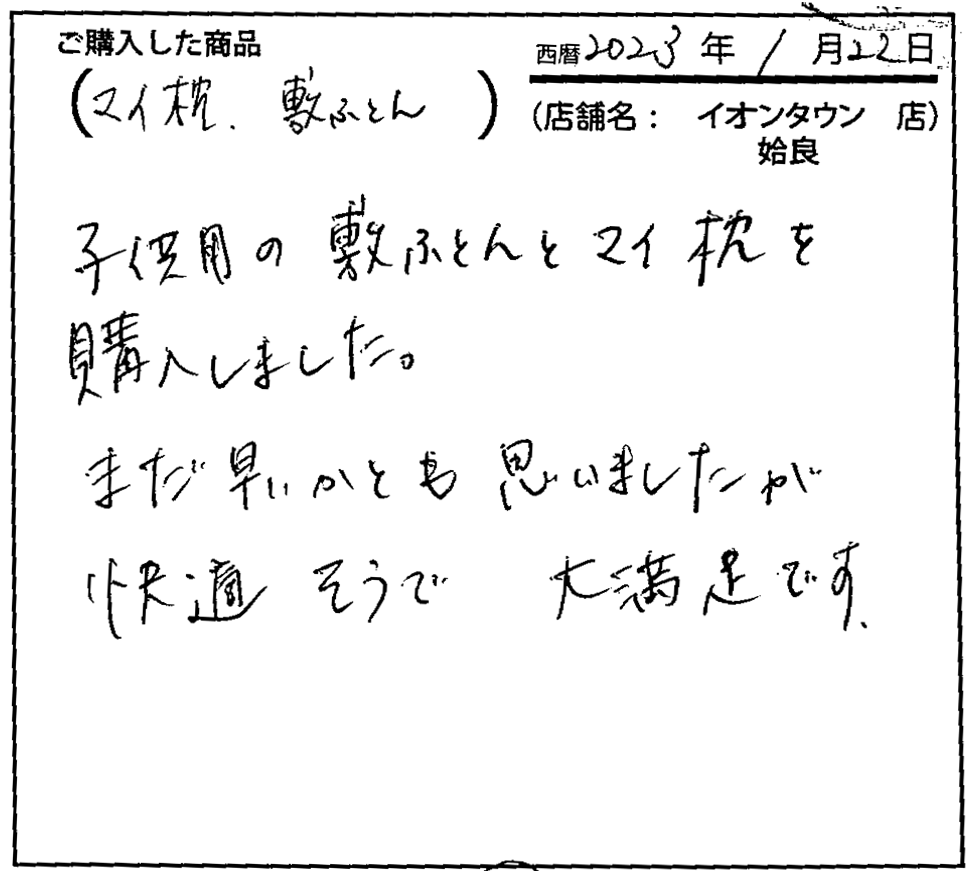 ご購入した商品
(マイ枕、敷ふとん)
西暦2023年1月22日
(店舗名： イオンタウン 店)
姶良
子供用の敷ふとんとマイ枕を
購入しました。
まだ早いかとも思いましたが
快適そうで 大満足です。